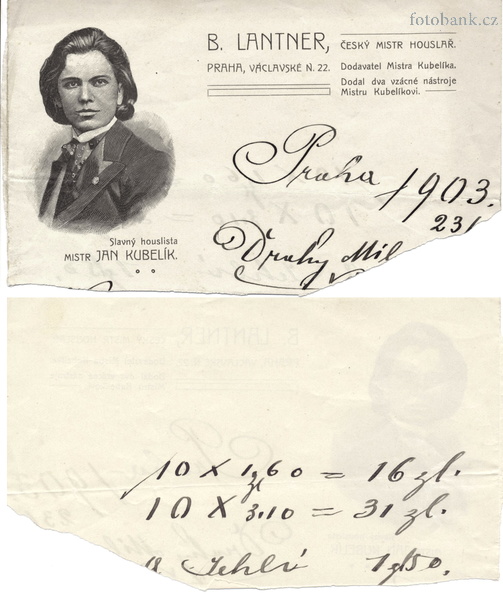 fotobank.cz
B. LANTNER, ČESKÝ MISTR HOUSLAŘ.
PRAHA, VÁCLAVSKÉ N. 22. Dodavatel Mistra Kubelíka.
Dodal dva vzácné nástroje
Mistru Kubelíkovi.
Praha 1903.
23/
Drahý Mil
Slavný houslista
MISTR JAN KUBELÍK.
10 X 1,60 = 16 zl.
zl
10 X 3.10 = 31 zl.